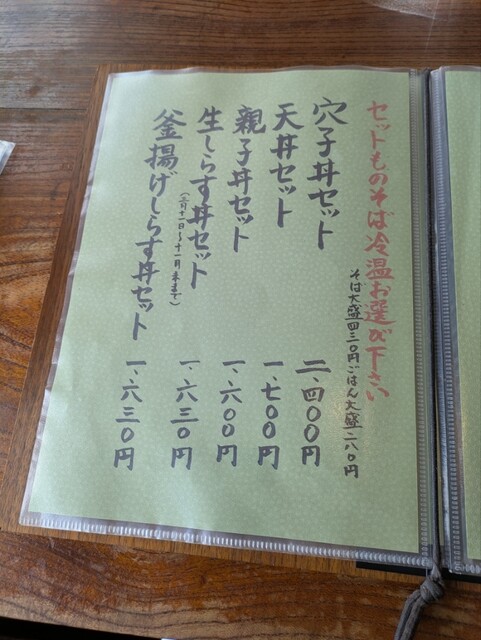 セットものそば冷温お選び下さい
そば大盛四三〇円ごはん大盛二八〇円
穴子丼セット 二、四〇〇円
天丼セット 一、七〇〇円
親子丼セット 一、六〇〇円
生しらす丼セット 一、六三〇円
(三月十一日〜十一月末まで)
釜揚げしらす丼セット 一、六三〇円